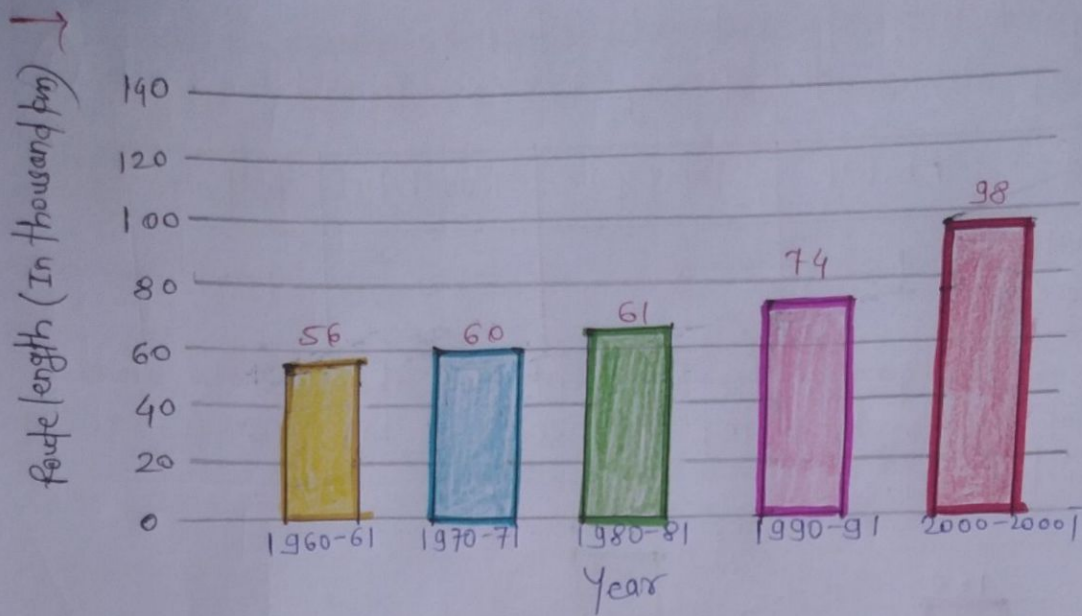 Route length (In thousand km)
140
120
100
80
60
40
20
0
56
60
61
74
98
1960-61
1970-71
1980-81
1990-91
2000-20001
Year